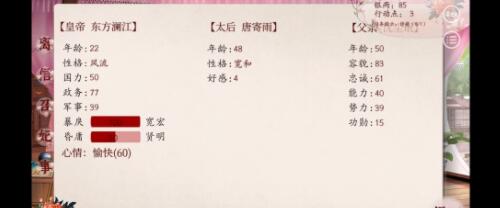 银两：85
行动点：3
【皇帝 东方澜江】
年龄：22
性格：风流
国力：50
政务：77
军事：39
暴戾 宽宏
昏庸 贤明
心情：愉快(60)
【太后 唐寄雨】
年龄：48
性格：宽和
好感：4
【父亲
年龄：50
容貌：83
忠诚：61
能力：40
势力：39
功勋：15
离
信
召
宠
事